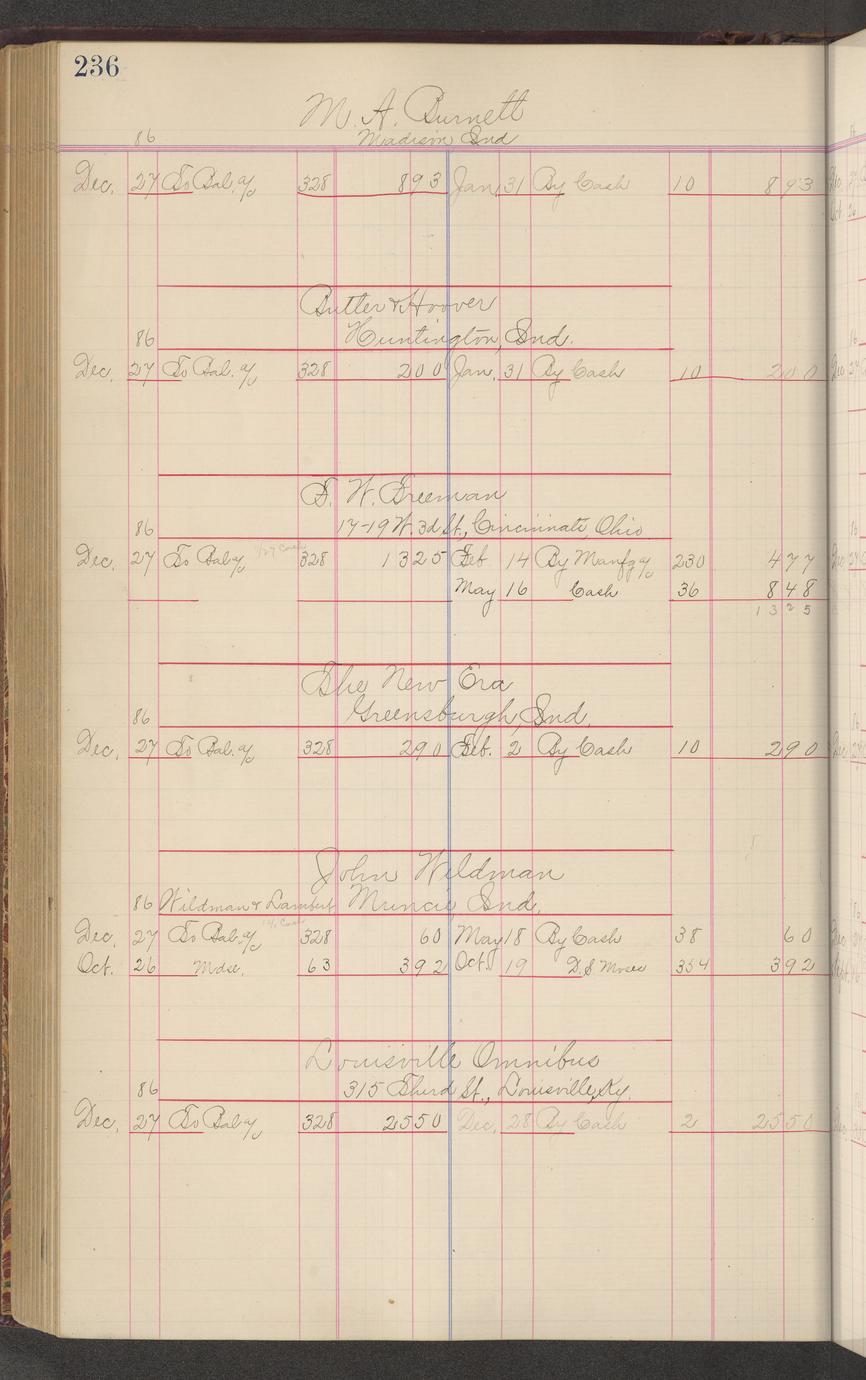 236
M. A. Burnett
86 Madison Ind
Dec. 27 To Bal. a/c 328 893 Jan 31 By Cash 10 893
Butler & Hoover
86 Huntington, Ind.
Dec. 27 To Bal. a/c 328 200 Jan. 31 By Cash 10 200
F. W. Freeman
86 17-19 W. 3d St., Cincinnati Ohio
Dec. 27 To Bal a/c 328 1325 Feb 14 By Manfg a/c 230 477
May 16 Cash 36 848
1325
The New Era
86 Greensburgh, Ind.
Dec. 27 To Bal. a/c 328 290 Feb. 2 By Cash 10 290
John Wildman
86 Wildman & Lambert Muncie Ind.
Dec. 27 To Bal. a/c 328 60 May 18 By Cash 38 60
Oct. 26 Mdse. 63 392 Oct. 19 D. S Moses 354 392
Louisville Omnibus
86 315 Third St., Louisville, Ky.
Dec. 27 To Bal a/c 328 2550 Dec. 28 By Cash 2 2550